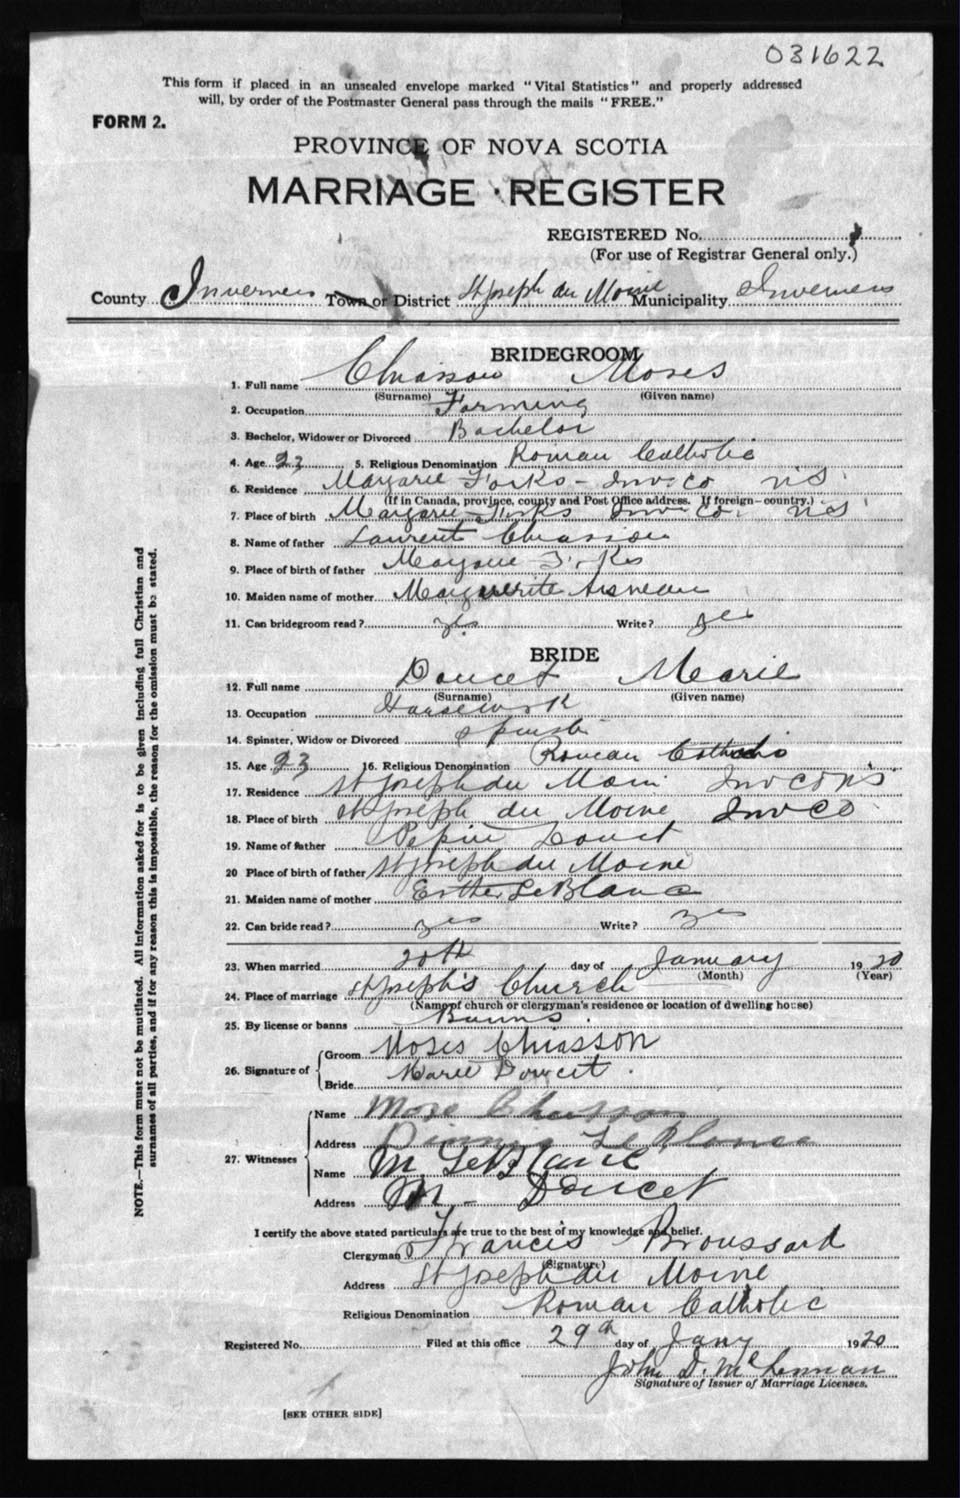 031622
This form if placed in an unsealed envelope marked "Vital Statistics" and properly addressed
will, by order of the Postmaster General pass through the mails "FREE."
FORM 2.
PROVINCE OF NOVA SCOTIA
MARRIAGE REGISTER
REGISTERED No.
(For use of Registrar General only.)
County Inverness Town or District St Joseph du Moine Municipality Inverness
BRIDEGROOM
1. Full name Chiasson Moses
(Surname) (Given name)
2. Occupation Farming
3. Bachelor, Widower or Divorced Bachelor
4. Age 23 5. Religious Denomination Roman Catholic
6. Residence Margaree Forks - Inv Co NS
(If in Canada, province, county and Post Office address. If foreign—country.)
7. Place of birth Margaree Forks Inv Co. NS
8. Name of father Laurent Chiasson
9. Place of birth of father Margaree Forks
10. Maiden name of mother Marguerite
11. Can bridegroom read? yes Write? yes
BRIDE
12. Full name Doucet Marie
(Surname) (Given name)
13. Occupation Housework
14. Spinster, Widow or Divorced
15. Age 23 16. Religious Denomination Roman Catholic
17. Residence St Joseph du Moine Inv Co NS
18. Place of birth St Joseph du Moine Inv Co
19. Name of father Doucet
20 Place of birth of father St Joseph du Moine
21. Maiden name of mother Esther LeBlanc
22. Can bride read? yes Write? yes
23. When married 20th day of January 1920
(Month) (Year)
24. Place of marriage St Joseph's Church
(Name of church or clergyman's residence or location of dwelling house)
25. By license or banns Banns
26. Signature of
Groom Moses Chiasson
Bride Marie Doucet
27. Witnesses
Name Mose Chiasson
Address LeBlanc
Name M LeBlanc
Address M - Doucet
I certify the above stated particulars are true to the best of my knowledge and belief.
Clergyman Francis Broussard
(Signature)
Address St Joseph du Moine
Religious Denomination Roman Catholic
Registered No. Filed at this office 29th day of Jany 1920
John D. McLennan
Signature of Issuer of Marriage Licenses.
[SEE OTHER SIDE]
NOTE.—This form must not be mutilated. All information asked for is to be given including full Christian and
surnames of all parties, and if for any reason this is impossible, the reason for the omission must be stated.